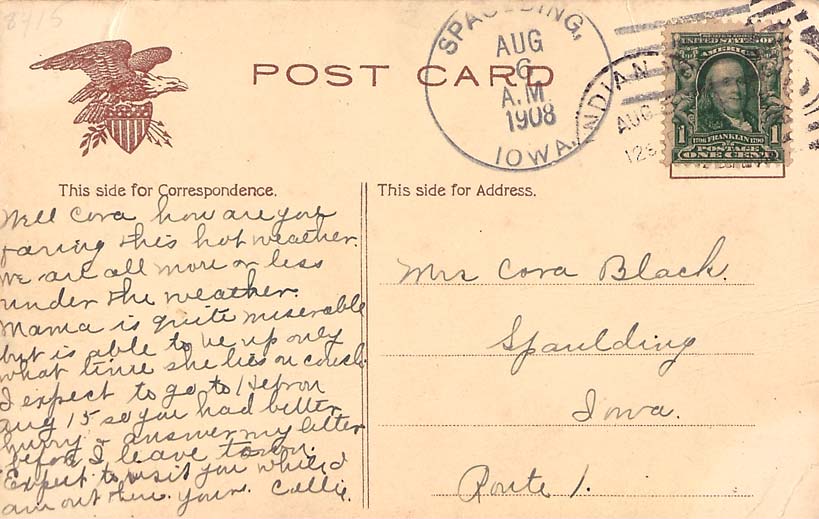 8415
POST CARD
SPAULDING,
AUG
6
A.M.
1908
IOWA.
INDIAN
AUG
12
UNITED STATES OF
AMERICA
1 1706 FRANKLIN 1790 1
POSTAGE
ONE CENT
This side for Correspondence.
Well Cora how are you
faring this hot weather.
We are all more or less
under the weather.
Mama is quite miserable
but is able to be up only
what time she lies on couch.
I expect to go to Hebron
Aug 15 so you had better
hurry & answer my letter
before I leave town.
Expect to visit you while I
am out there. yours. Callie.
This side for Address.
Mrs Cora Black.
Spaulding
Iowa.
Route 1.